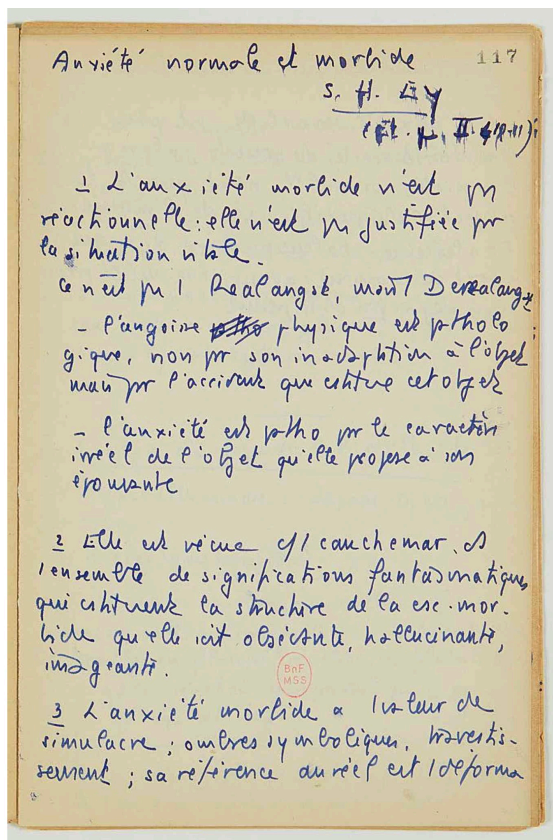 Anxiété normale et morbide
117
s. H. Ey
(Et. II
1 L'anxiété morbide n'est ps
réactionnelle : elle n'est ps justifiée pr
la situation vitale.
Ce n'est ps 1 Realangst, mais 1 Derealangst
- l'angoisse physique est patholo
gique, non pr son inadaptation à l'objet
mais pr l'accident que cstitue cet objet
- l'anxiété est patho pr le caractère
irréel de l'objet qu'elle propose à son
épouvante
2 Elle est vécue c/ 1 cauchemar. ds
l'ensemble de significations fantasmatiques
qui cstituent la structure de la csc. mor-
bide qu'elle soit obsédante, hallucinante,
imageante.
BnF
MSS
3 L'anxiété morbide a 1 valeur de
simulacre ; ombres symboliques, travestis-
sement ; sa référence au réel est 1 déforma